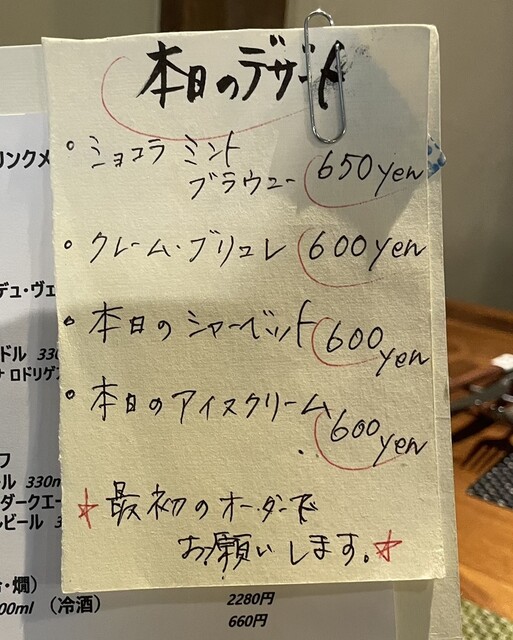 本日のデザート
ショコラ ミント
ブラウニー 650yen
クレーム・ブリュレ 600yen
本日のシャーベット 600
yen
本日のアイスクリーム 600
yen
☆最初のオーダーで
お願いします。☆
リンクメ
デュ・ヴェ
ドル 330
ナ ロドリゲス
フ
ール 330m
ダークエー
ルビール 3
・燗)
00ml (冷酒)
2280円
660円